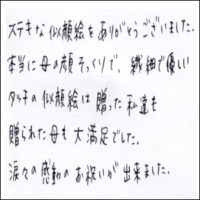 ステキな似顔絵をありがとうございました。
本当に母の顔そっくりで、繊細で優しい
タッチの似顔絵は贈った私達も
贈られた母も大満足でした。
涙々の感動のお祝いが出来ました。